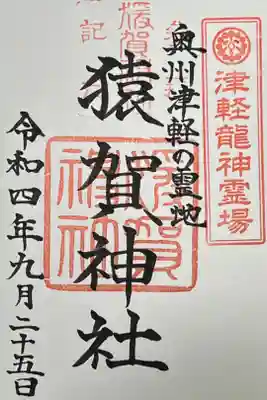 津軽龍神霊場
奥州津軽の霊地
猿賀神社
令和四年九月二十五日